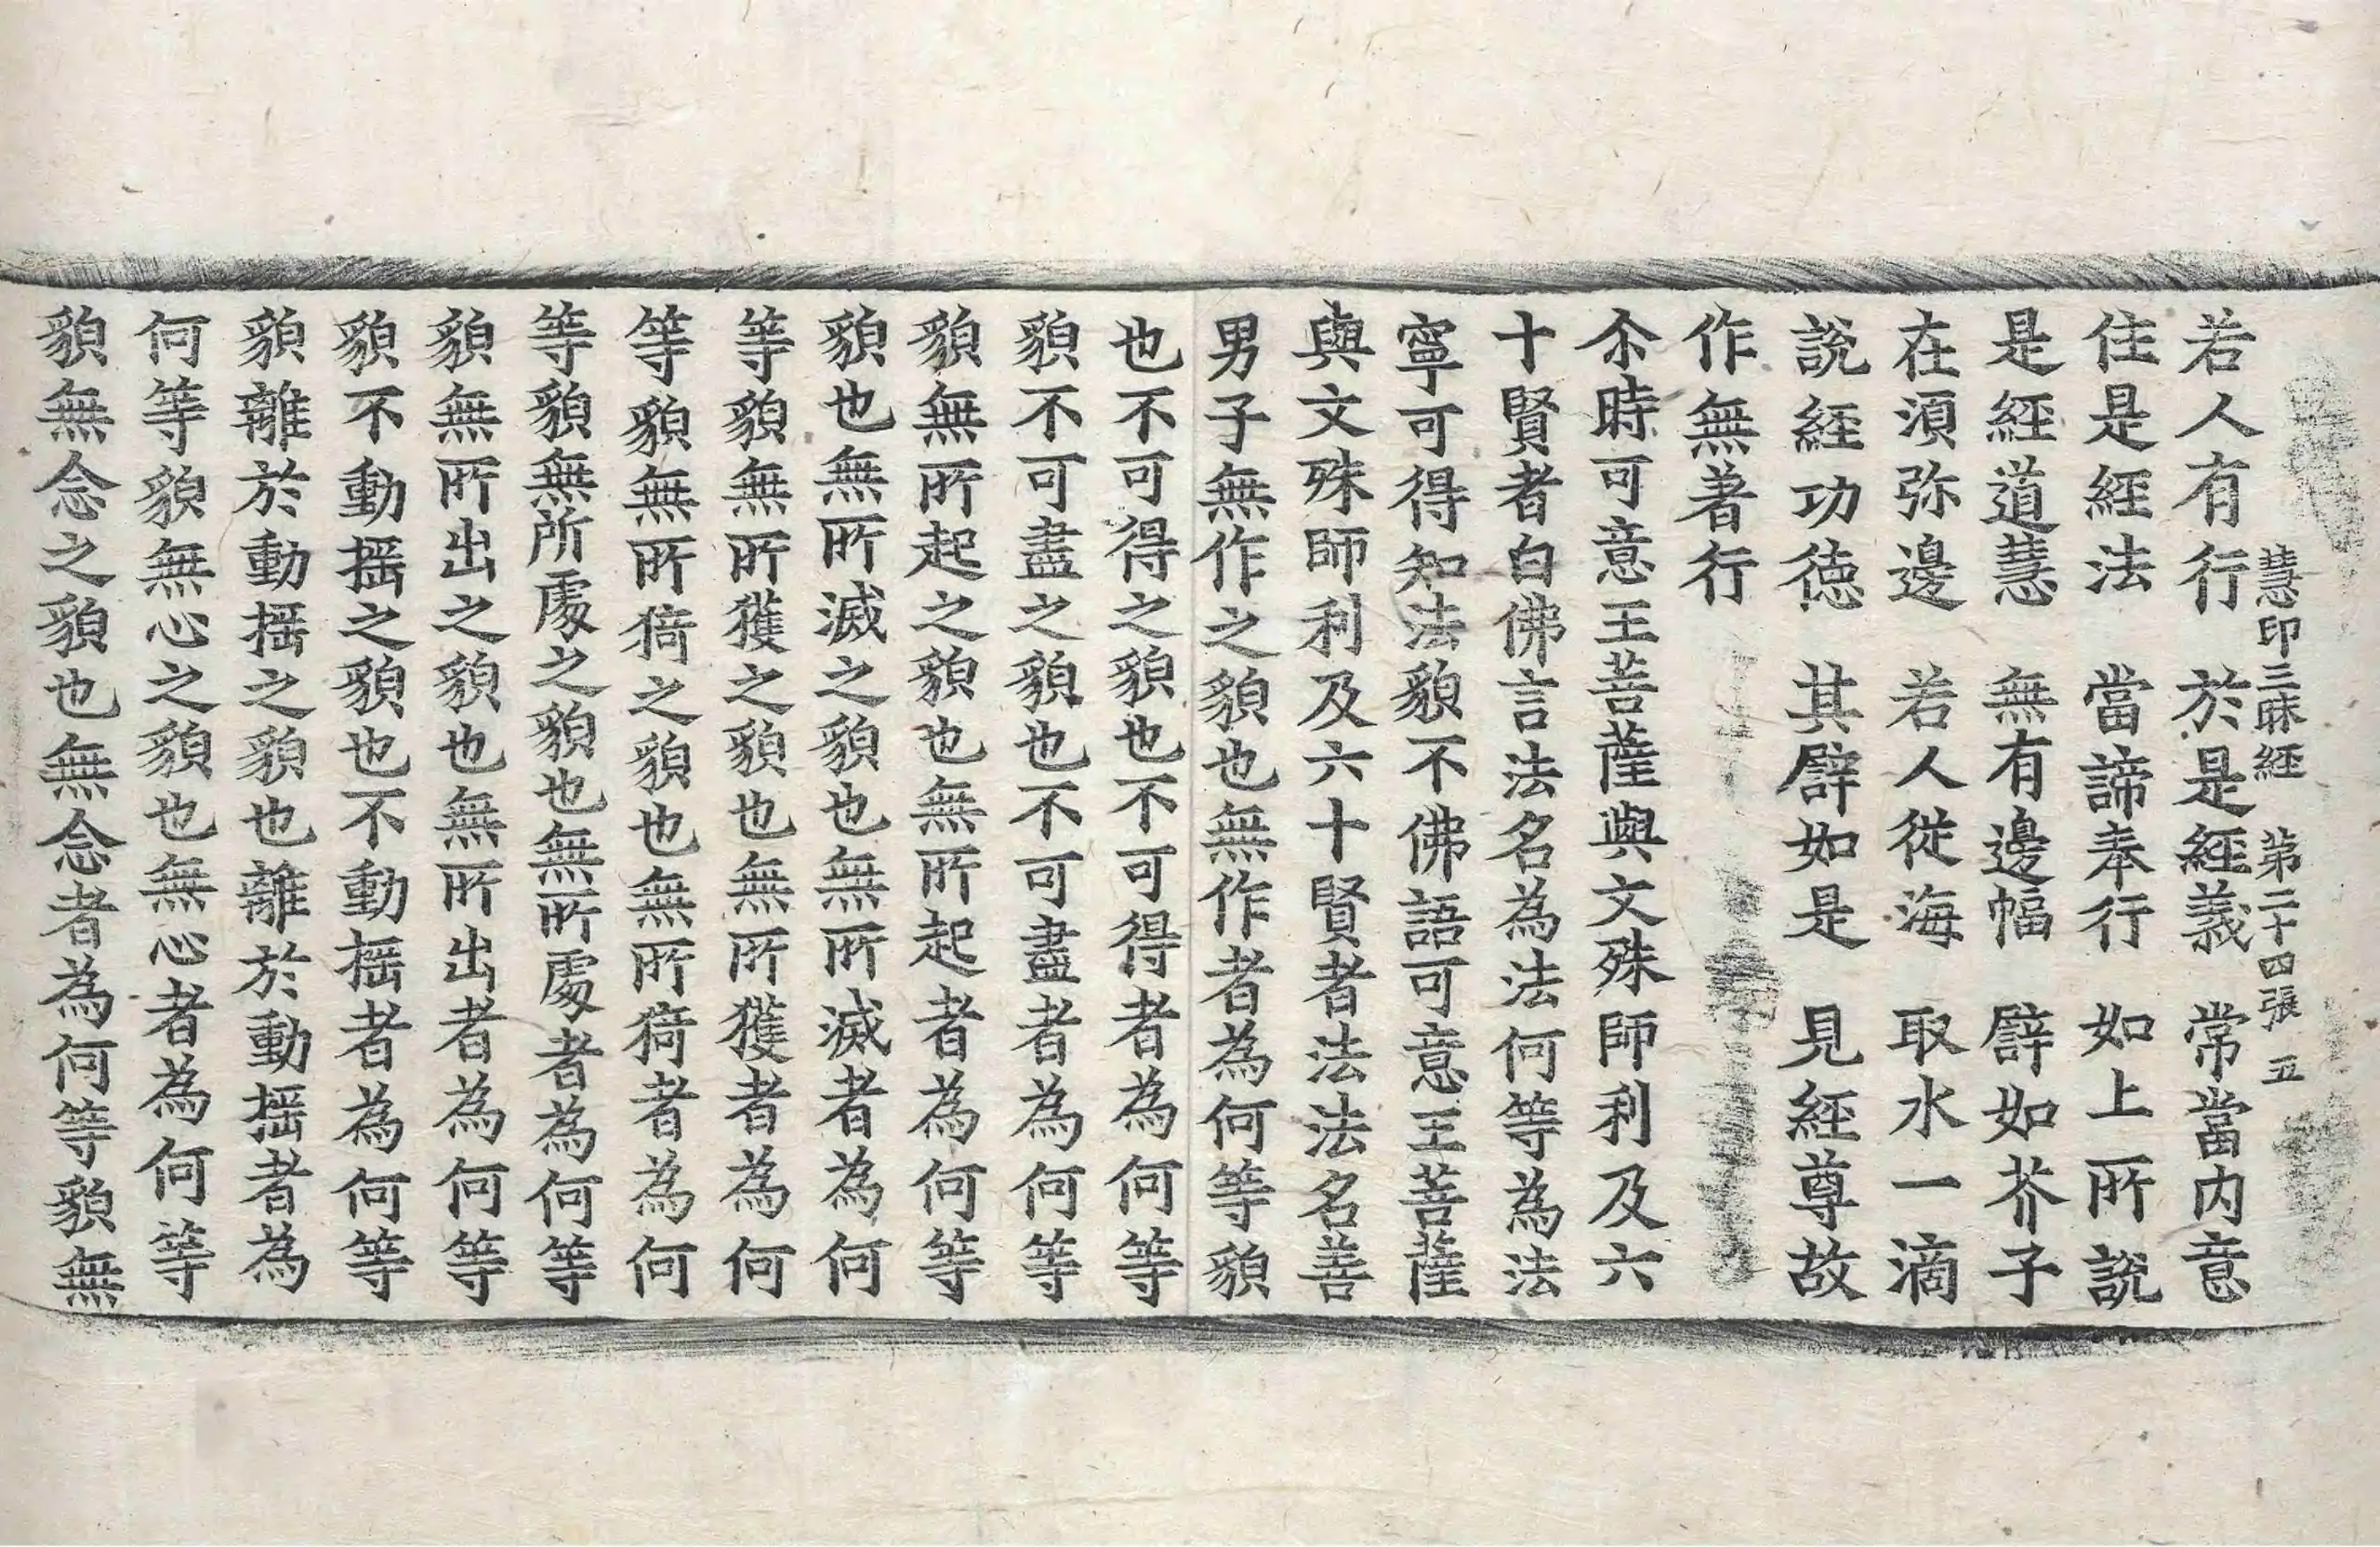 慧印三昧經 第二十四張 五
若人有行 於是經義 常當内意
住是經法 當諦奉行 如上所說
是經道慧 無有邊幅 譬如芥子
在須弥邊 若人從海 取水一滴
說經功德 其譬如是 見經尊故
作無著行
尒時可意王菩薩與文殊師利及六
十賢者白佛言法名為法何等為法
寧可得知法貌不佛語可意王菩薩
與文殊師利及六十賢者法法名善
男子無作之貌也無作者為何等貌
也不可得之貌也不可得者為何等
貌不可盡之貌也不可盡者為何等
貌無所起之貌也無所起者為何等
貌也無所滅之貌也無所滅者為何
等貌無所獲之貌也無所獲者為何
等貌無所猗之貌也無所猗者為何
等貌無所處之貌也無所處者為何等
貌無所出之貌也無所出者為何等
貌不動搖之貌也不動搖者為何等
貌離於動搖之貌也離於動搖者為
何等貌無心之貌也無心者為何等
貌無念之貌也無念者為何等貌無